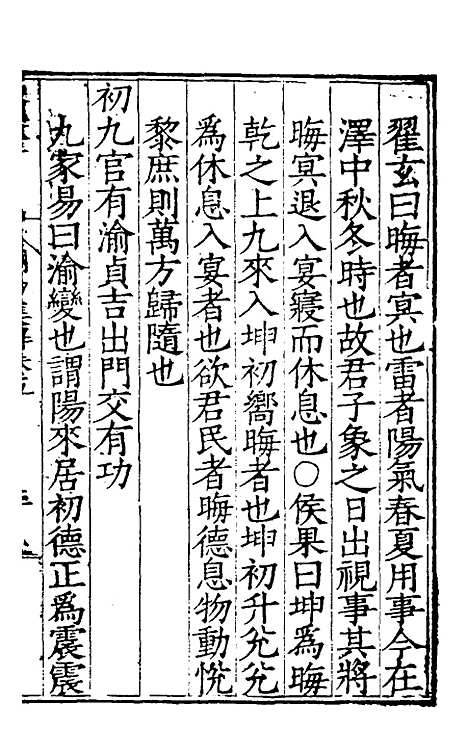 翟玄曰晦者冥也雷者陽氣春夏用事今在
澤中秋冬時也故君子象之日出視事其將
晦冥退入宴寢而休息也○侯果曰坤為晦
乾之上九來入坤初嚮晦者也坤初升兌兌
為休息入宴者也欲君民者晦德息物動悅
黎庶則萬方歸隨也
初九官有渝貞吉出門交有功
九家易曰渝變也謂陽來居初德正為震震